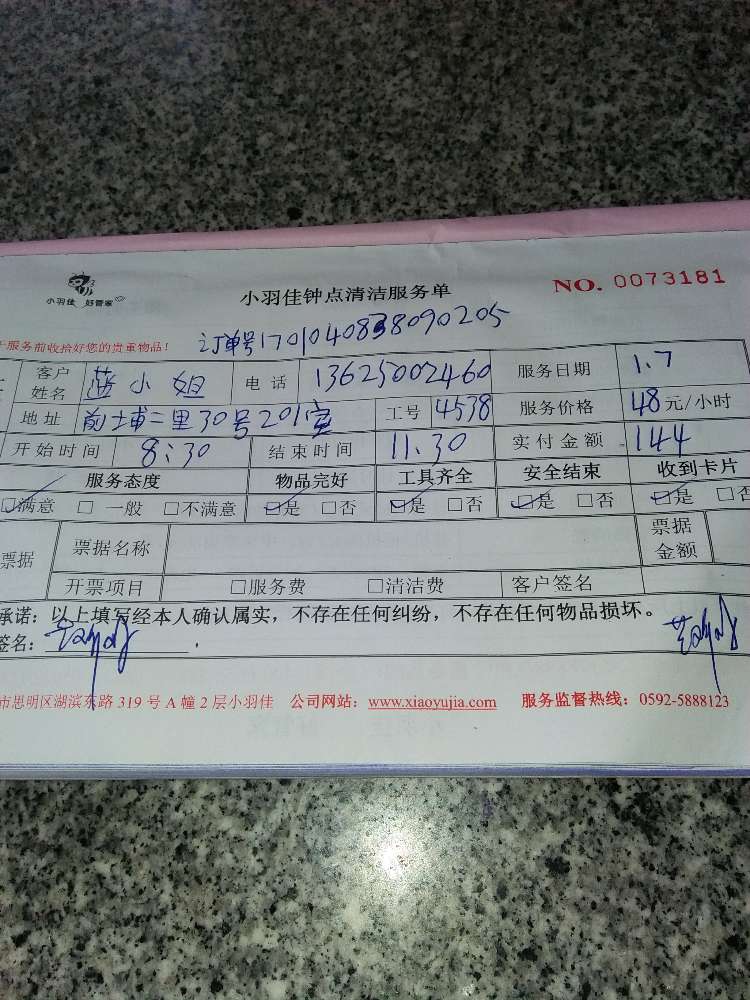 小羽佳 好管家
小羽佳钟点清洁服务单
NO. 0073181
服务前收拾好您的贵重物品！
订单号1701040838090205
客户姓名 小姐 电话 13625002460 服务日期 1.7
地址 前埔二里30号201室 工号 4538 服务价格 48元/小时
开始时间 8:30 结束时间 11.30 实付金额 144
服务态度 物品完好 工具齐全 安全结束 收到卡片
☑满意 □一般 □不满意 ☑是 □否 ☑是 □否 ☑是 □否 ☑是 □否
票据 票据名称 票据金额
开票项目 □服务费 □清洁费 客户签名
承诺：以上填写经本人确认属实，不存在任何纠纷，不存在任何物品损坏。
签名：
市思明区湖滨东路319号A幢2层小羽佳 公司网站：www.xiaoyujia.com 服务监督热线：0592-5888123